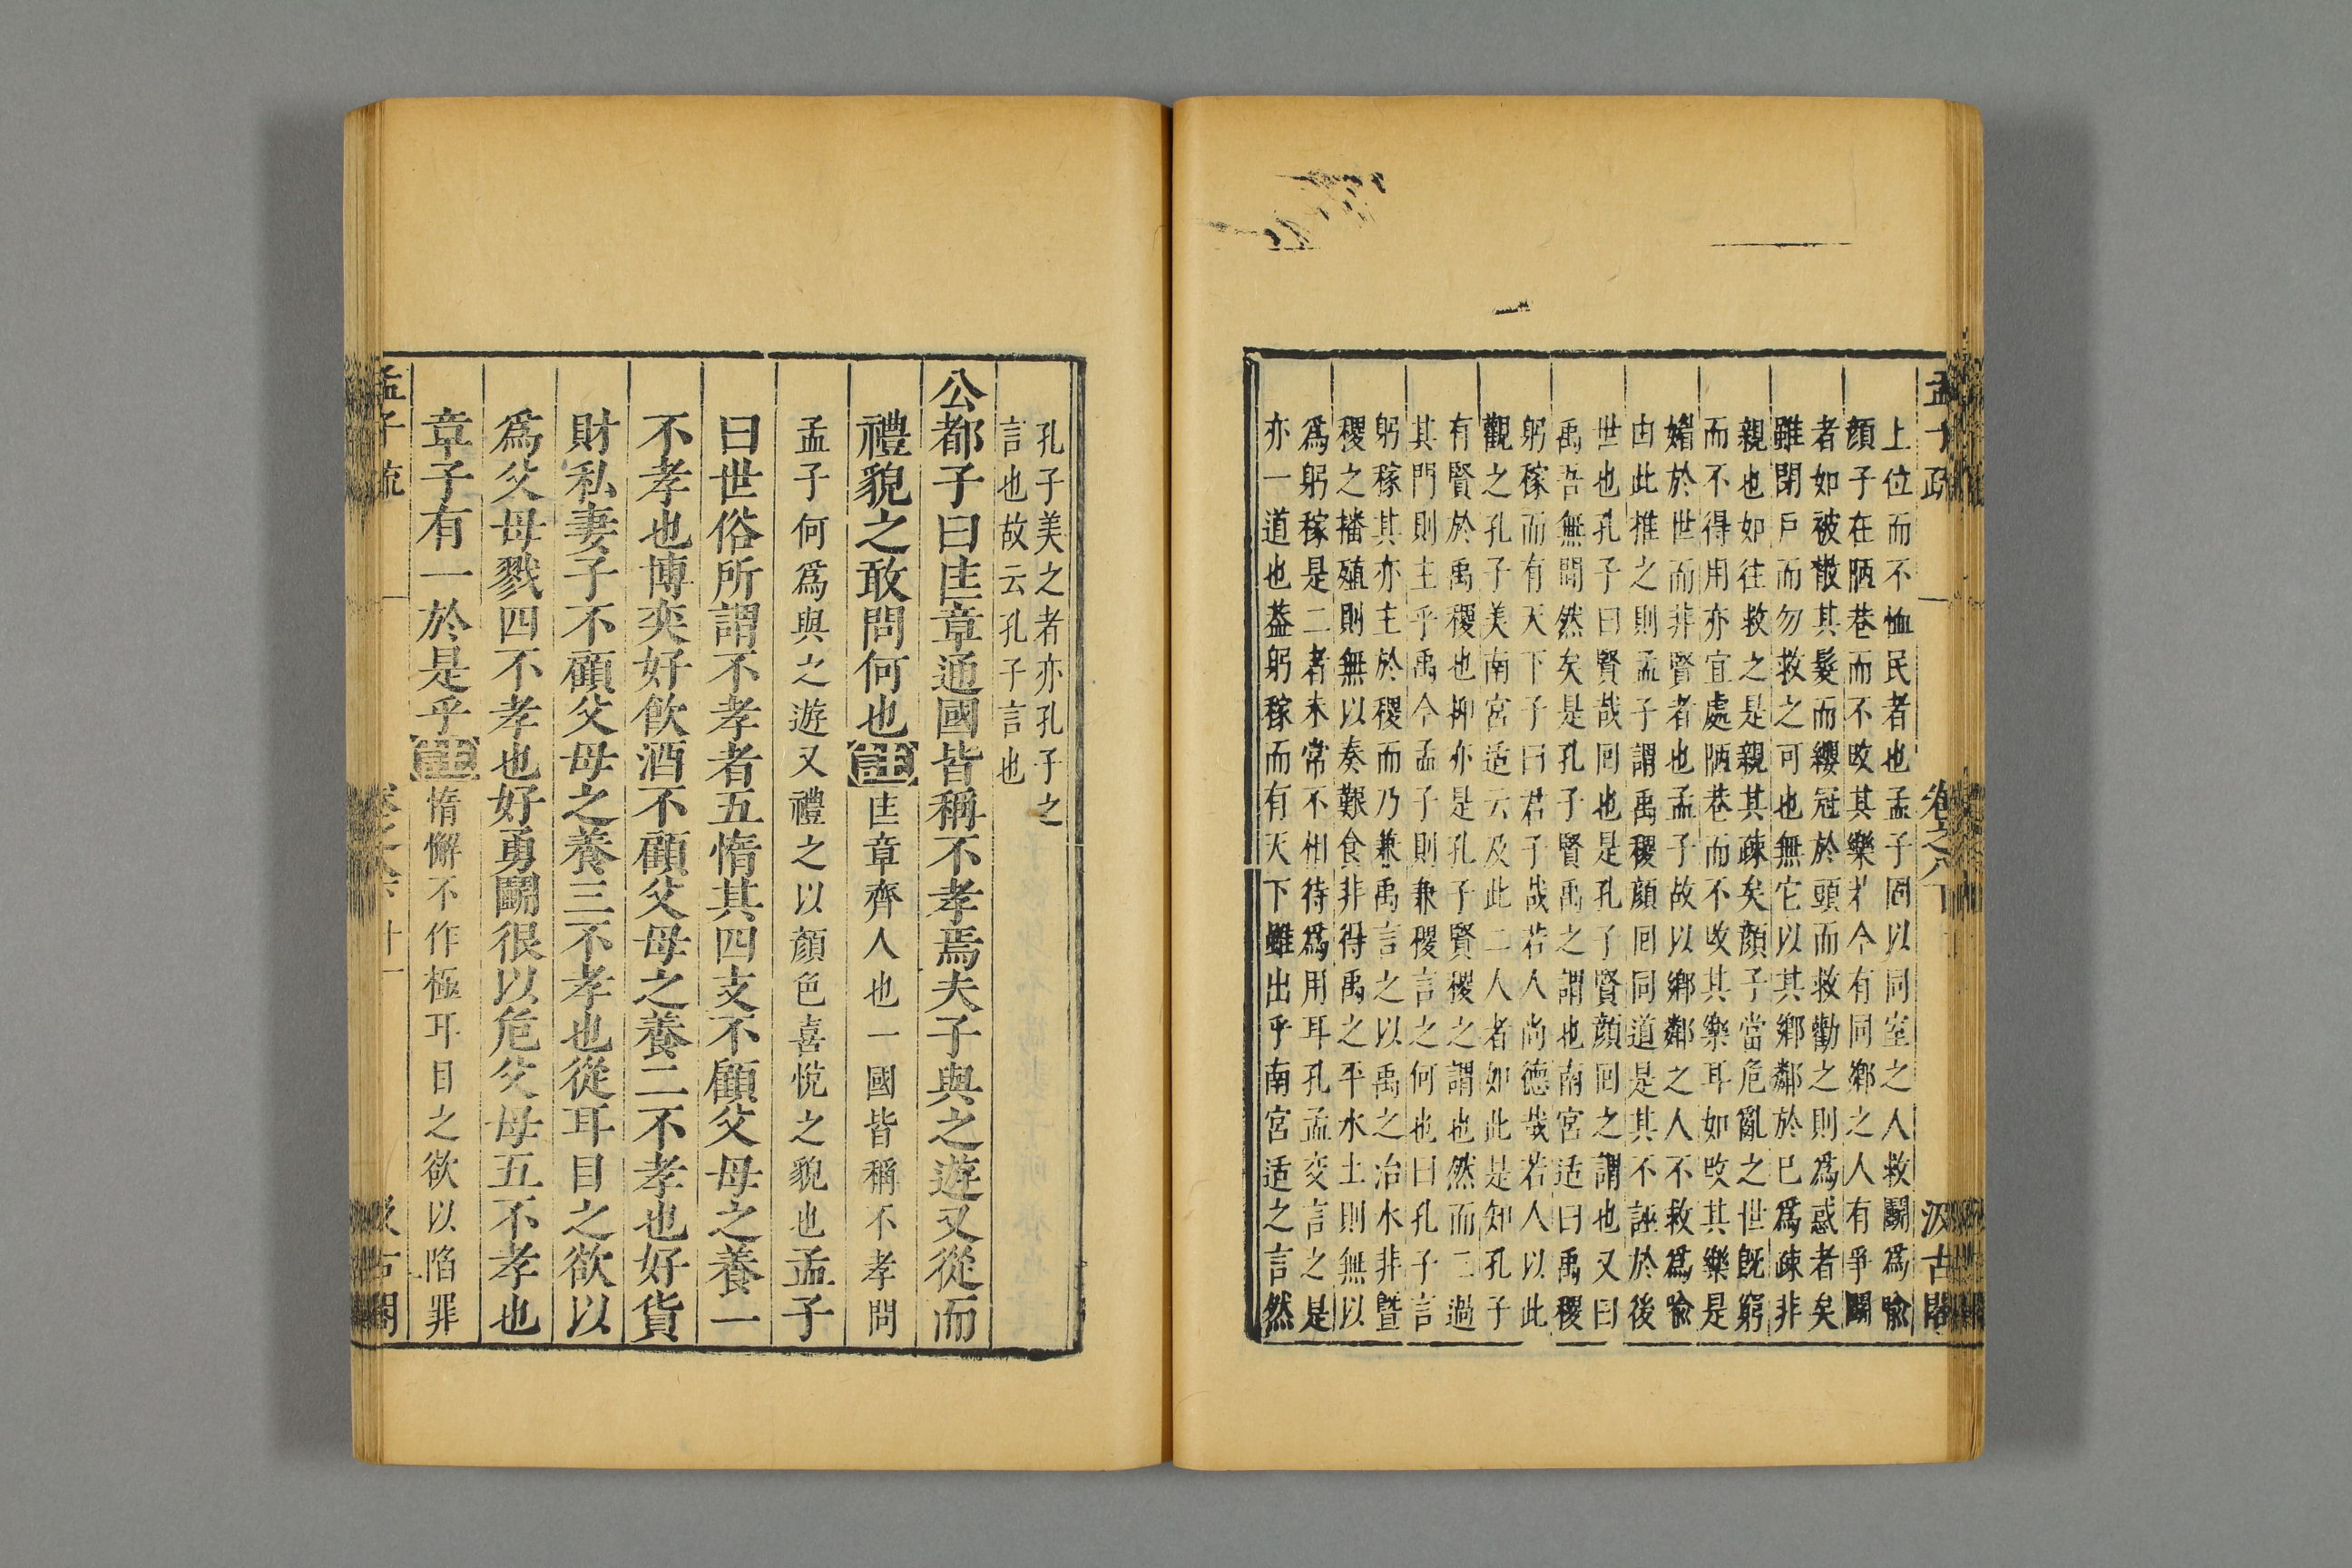 孟子疏 卷之八下 汲古閣
上位而不恤民者也孟子固以同室之人救鬭爲喻
顏子在陋巷而不改其樂今有同鄉之人有爭鬭
者如被散其髮而纓冠於頭而救勸之則爲惑者矣
雖閉戶而勿救之可也無它以其鄉鄰於已爲疎非
親也如往救之是親其疎矣顏子當危亂之世旣窮
而不得用亦宜處陋巷而不改其樂耳如改其樂是
媚於世而非賢者也孟子故以鄉鄰之人不救爲喻
由此推之則孟子謂禹稷顏回同道是其不誣於後
世也孔子曰賢哉回也是孔子賢顏回之謂也又曰
禹吾無間然矣是孔子賢禹之謂也南宮适曰禹稷
躬稼而有天下子曰君子哉若人尚德哉若人以此
觀之孔子美南宮适云及此二人者如此是知孔子
有賢於禹稷也抑亦是孔子賢稷之謂也然而二過
其門則主乎禹今孟子則兼稷言之何也曰孔子言
躬稼其亦主於稷而乃兼禹言之以禹之治水非曁
稷之播殖則無以奏艱食非得禹之平水土則無以
爲躬稼是二者未常不相待爲用耳孔孟交言之是
亦一道也葢躬稼而有天下雖出乎南宮适之言然
孔子美之者亦孔子之
言也故云孔子言也
公都子曰匡章通國皆稱不孝焉夫子與之遊又從而
禮貌之敢問何也註匡章齊人也一國皆稱不孝問
孟子何爲與之遊又禮之以顏色喜悅之貌也孟子
曰世俗所謂不孝者五惰其四支不顧父母之養一
不孝也博奕好飮酒不顧父母之養二不孝也好貨
財私妻子不顧父母之養三不孝也從耳目之欲以
爲父母戮四不孝也好勇鬭很以危父母五不孝也
章子有一於是乎註惰懈不作極耳目之欲以陷罪
孟子疏 卷之八下 十一 汲古閣